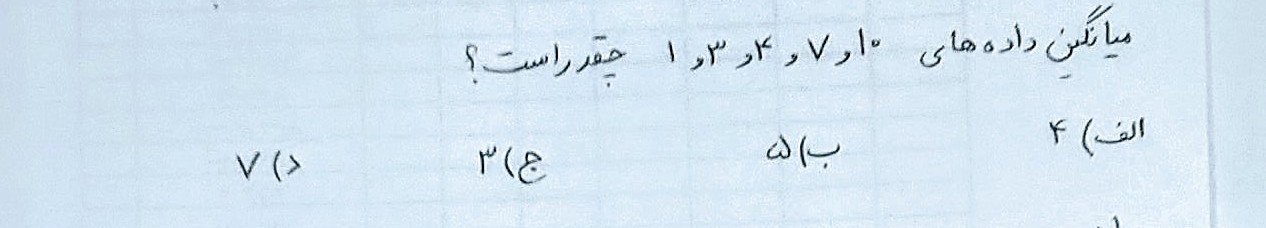 میانگین داده های ۱۰ و ۷ و ۴ و ۳ و ۱ چقدر است؟
الف) ۴ ب) ۵ ج) ۳ د) ۷